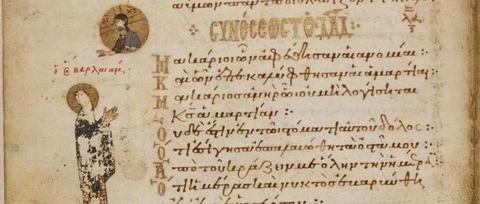 ΣΥΝΕΣΕΩΣ ΤΩ ΔΑΔ
βαρλααμ
Μακάριοι ὧν ἀφέθησαν αἱ ἀνομίαι
Καὶ ὧν ἐπεκαλύφθησαν αἱ ἁμαρτίαι
Μακάριος ἀνὴρ ᾧ οὐ μὴ λογίσηται
κς ἁμαρτίαν :
Οὐδὲ ἔστιν ἐν τῷ στόματι αὐτοῦ δόλος
Ὅτι ἐσίγησα ἐπαλαιώθη τὰ ὀστᾶ μου :
Ἀπὸ τοῦ κράζειν με ὅλην τὴν ἡμέραν
Ὅτι ἡμέρας καὶ νυκτὸς ἐβαρύνθη